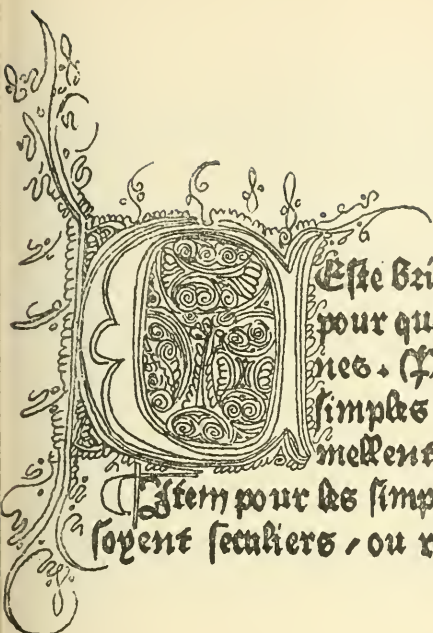 CEste bri
pour qu
nes. (P
simples
mellent
¶ Item pour les simp
soyent seculiers / ou r